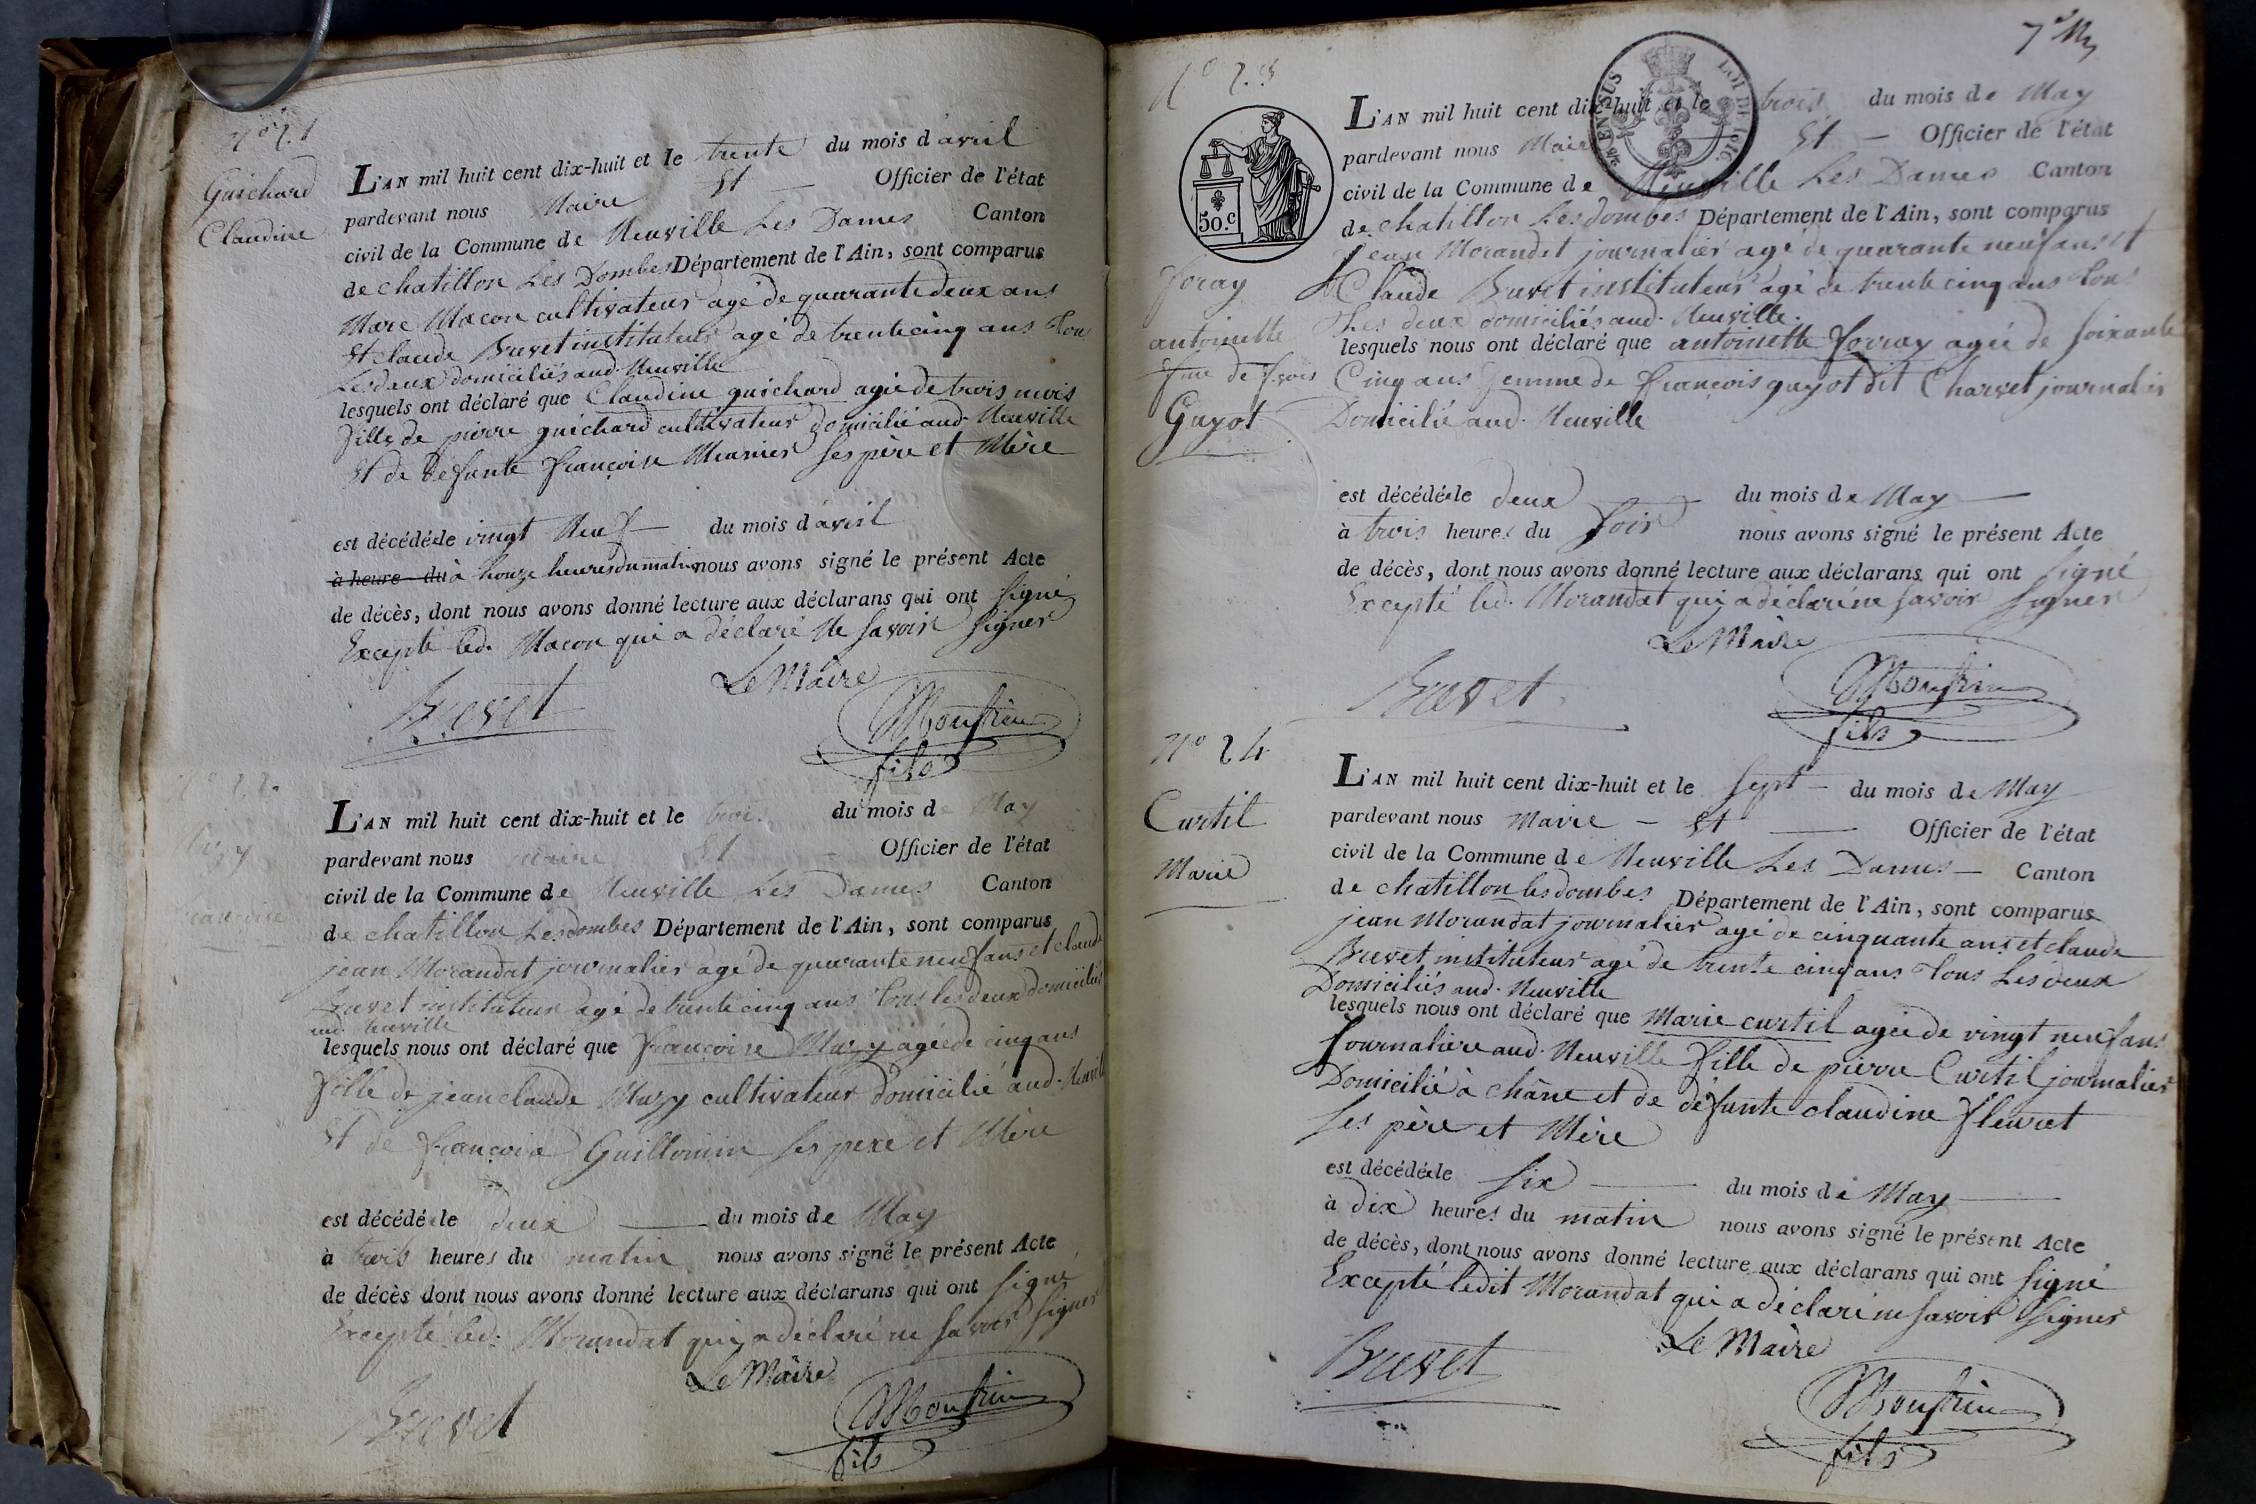 N° 21
Guichard
Claudine
L'AN mil huit cent dix-huit et le trente du mois d'avril
pardevant nous Maire Et — Officier de l'état
civil de la Commune de Neuville Les Dames Canton
de chatillon Les Dombes Département de l'Ain, sont comparus
Marc Macon cultivateur agé de quarante deux ans
Et claude Brevet instituteur agé de trente cinq ans Tous
Les deux domiciliés aud. Neuville
lesquels ont déclaré que Claudine guichard agée de trois mois
fille de pierre guichard cultivateur domicilié aud. Neuville
Et de défunte françoise Meunier ses père et Mère
est décédée le vingt Neuf — du mois d'avril
à heure du à honze heures du matin nous avons signé le présent Acte
de décès, dont nous avons donné lecture aux déclarans qui ont signé
Excepté led. Macon qui a déclaré Ne savoir signer
Le Maire
Brevet
fils
N° 22
L'AN mil huit cent dix-huit et le trois du mois de May
pardevant nous Maire Et Officier de l'état
civil de la Commune de Neuville Les Dames Canton
de chatillon Lesdombes Département de l'Ain, sont comparus
jean Morandat journalier agé de quarante neuf ans et claude
Brevet instituteur agé de trente cinq ans Tous les deux domiciliés
aud. Neuville
lesquels nous ont déclaré que françoise Muzy agée de cinq ans
fille de jean claude Muzy cultivateur domicilié aud. Neuville
Et de françoise Guillomin ses pere et Mère
est décédée le deux — du mois de May
à trois heures du matin nous avons signé le présent Acte
de décès dont nous avons donné lecture aux déclarans qui ont signé
Excepté led. Morandat qui a déclaré ne savoir signer
Le Maire
Brevet
fils
N° 23
50.c
LOI DE 1816
EN SUS
foray
antoinette
fme de fçois
Guyot
L'AN mil huit cent dix-huit et le trois du mois de May
pardevant nous Maire Et — Officier de l'état
civil de la Commune de Neuville Les Dames Canton
de chatillon Lesdombes Département de l'Ain, sont comparus
jean Morandat journalier agé de quarante neuf ans et
Claude Brevet instituteur agé de trente cinq ans Tous
Les deux domiciliés aud. Neuville.
lesquels nous ont déclaré que antoinette forray agée de soixante
Cinq ans femme de françois guyot dit Charvet journalier
Domicilié aud. Neuville
est décédée le deux — du mois de May —
à trois heures du soir nous avons signé le présent Acte
de décès, dont nous avons donné lecture aux déclarans qui ont signé
Excepté led. Morandat qui a déclaré ne savoir signer
Le Maire
Brevet
fils
N° 24
Curtil
Marie
L'AN mil huit cent dix-huit et le sept — du mois de May
pardevant nous Maire — Et — Officier de l'état
civil de la Commune de Neuville Les Dames — Canton
de chatillon les dombes Département de l'Ain, sont comparus
jean Morandat journalier agé de cinquante ans et claude
Brevet instituteur agé de trente cinq ans Tous Les deux
Domiciliés aud. Neuville
lesquels nous ont déclaré que Marie curtil agée de vingt neuf ans
Journaliere aud. Neuville fille de pierre Curtil journalier
Domicilié à châne et de défunte claudine fleuret
ses père et Mère
est décédée le six — du mois de May —
à dix heures du matin nous avons signé le présent Acte
de décès, dont nous avons donné lecture aux déclarans qui ont signé
Excepté ledit Morandat qui a déclaré ne savoir signer
Le Maire
Brevet
fils